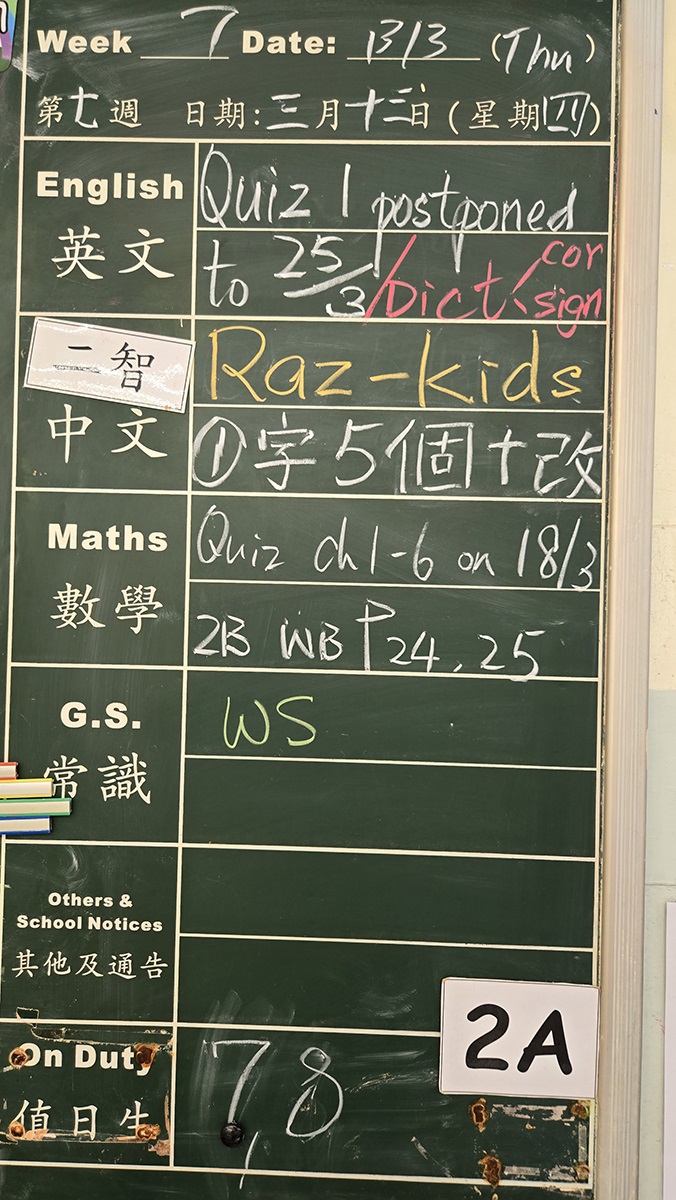 Week 7 Date: 13/3 (Thu)
第七週 日期:三月十三日(星期四)
English
英文
Quiz 1 postponed
to 25/3 / Dict cor sign
二智
Raz-kids
中文
①字5個+改
Maths
數學
Quiz ch1-6 on 18/3
2B WB P24, 25
G.S.
常識
WS
Others &
School Notices
其他及通告
2A
On Duty
值日生
7, 8